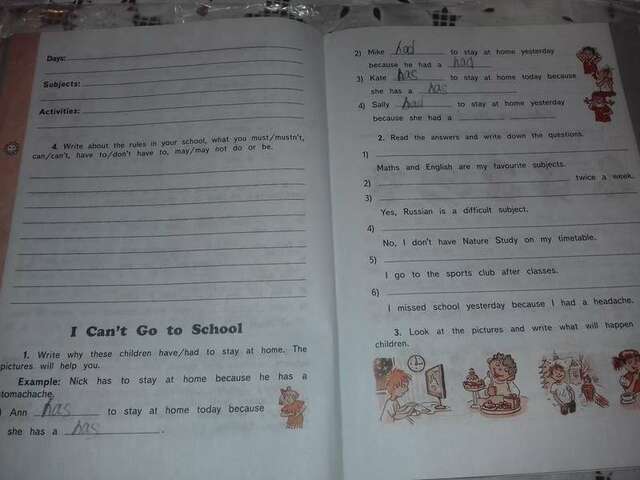 Days:
Subjects:
Activities:
4. Write about the rules in your school, what you must/mustn't,
can/can't, have to/don't have to, may/may not do or be.
I Can't Go to School
1. Write why these children have/had to stay at home. The
pictures will help you.
Example: Nick has to stay at home because he has a
tomachache.
) Ann has to stay at home today because
she has a has .
2) Mike had to stay at home yesterday
because he had a had
3) Kate has to stay at home today because
she has a has
4) Sally had to stay at home yesterday
because she had a
2. Read the answers and write down the questions.
1)
Maths and English are my favourite subjects.
2) twice a week.
3)
Yes, Russian is a difficult subject.
4)
No, I don't have Nature Study on my timetable.
5)
I go to the sports club after classes.
6)
I missed school yesterday because I had a headache.
3. Look at the pictures and write what will happen
children.